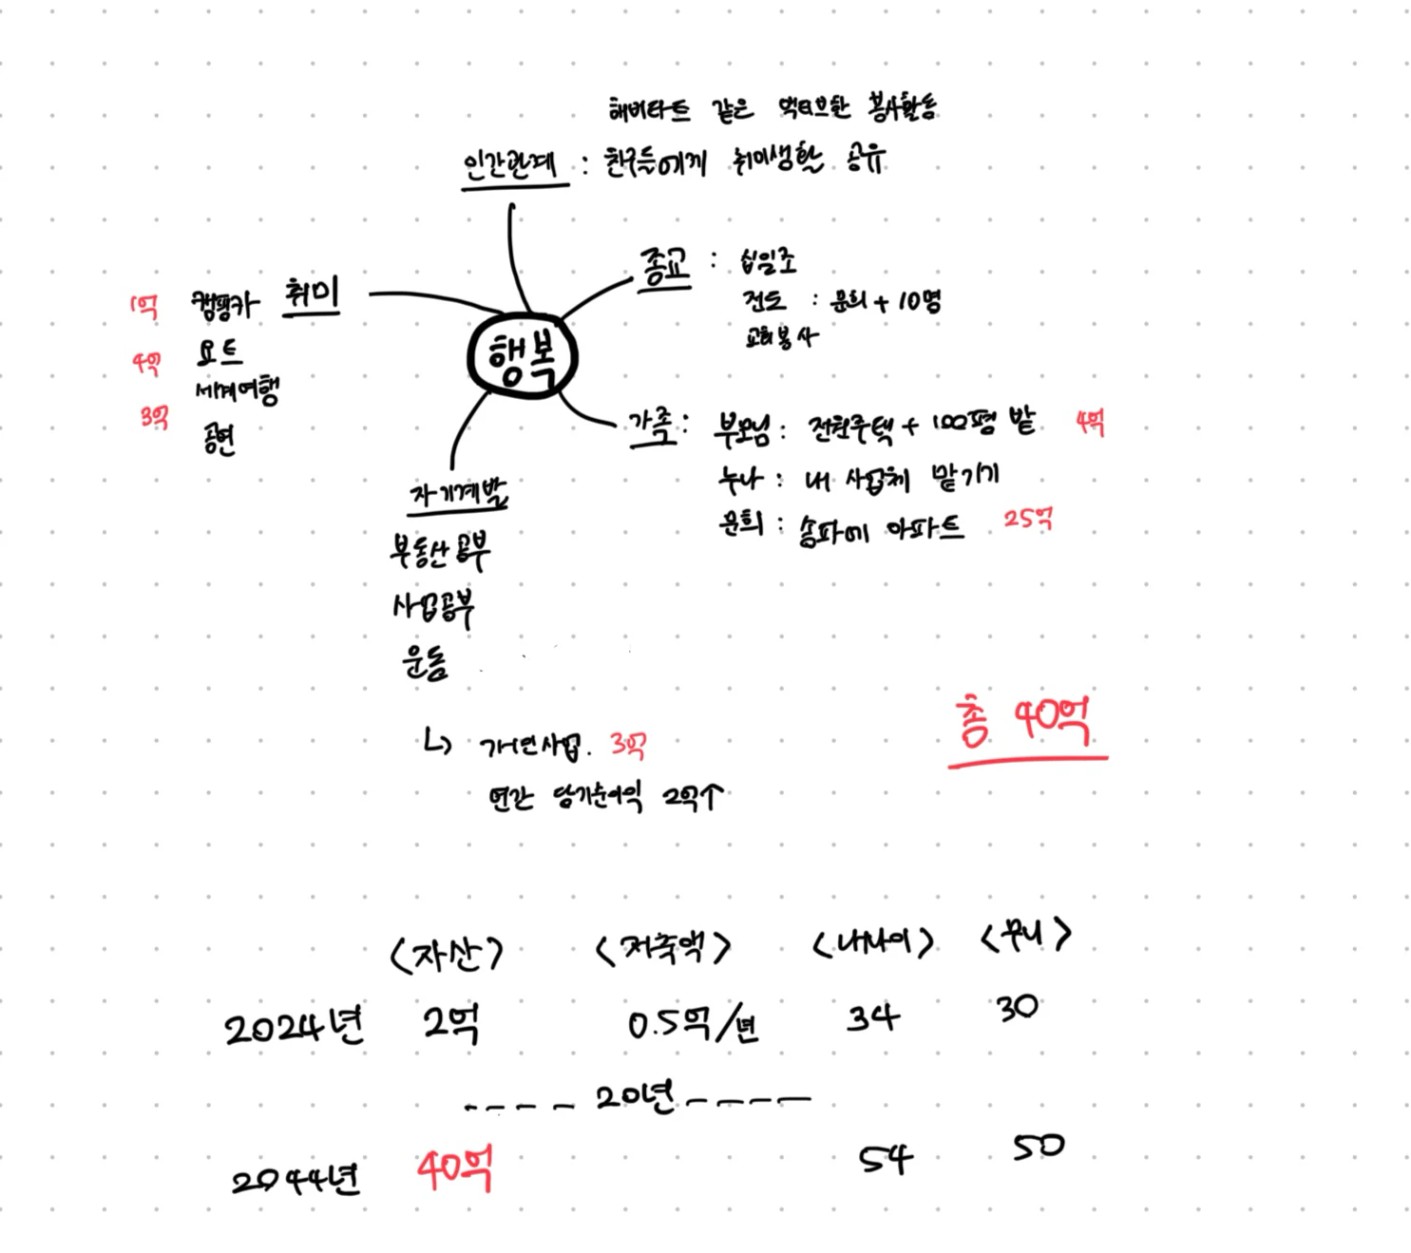 해비타트 같은 액티브한 봉사활동
인간관계 : 친구들에게 취미생활 공유
종교 : 십일조
전도 : 문희 + 10명
교회봉사
취미
1억 캠핑카
4억 요트
세계여행
3억
공연
행복
가족 : 부모님 : 전원주택 + 100평 밭 4억
누나 : 내 사업체 맡기기
문희 : 송파에 아파트 25억
자기계발
부동산공부
사업공부
운동
↳ 개인사업. 3억
연간 당기순이익 2억↑
총 40억
<자산> <저축액> <내나이> <무니>
2024년 2억 0.5억/년 34 30
---- 20년 ----
2044년 40억 54 50